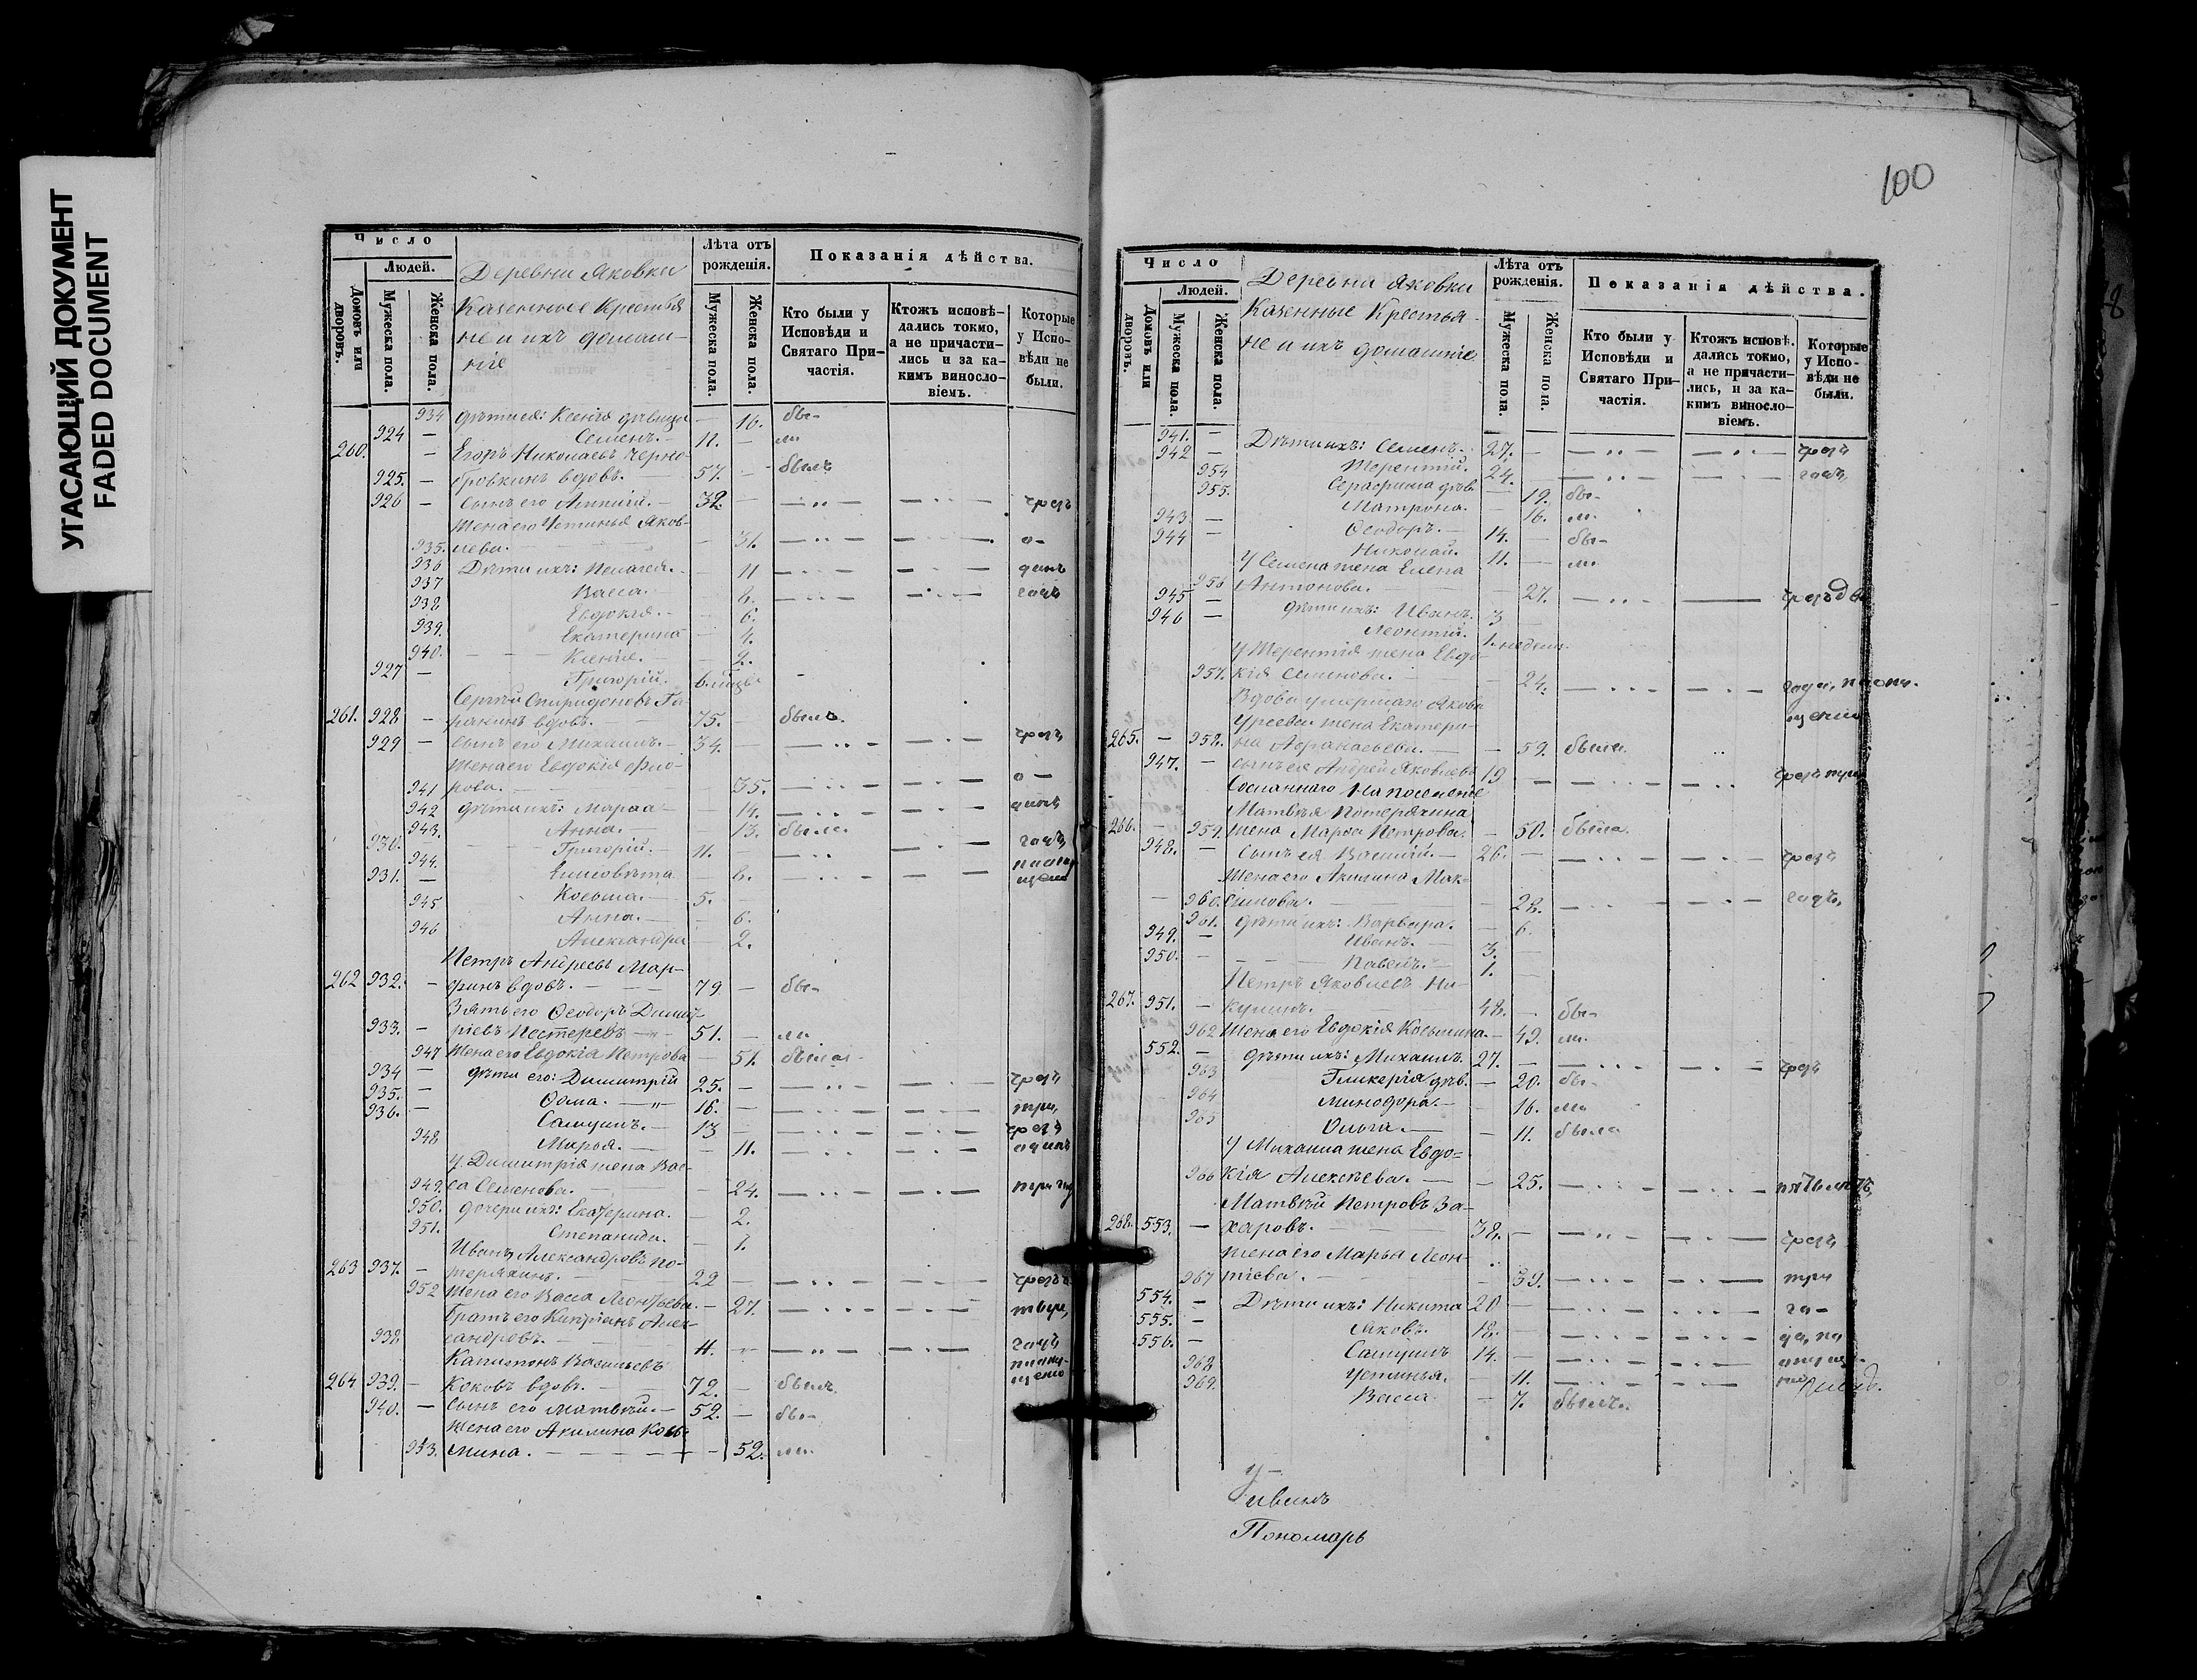 УГАСАЮЩИЙ ДОКУМЕНТ
FADED DOCUMENT
Число
Людей.
Домовъ или дворовъ.
Мужеска пола.
Женска пола.
Деревни Яковки
Казенные Крестья
не и ихъ домаш-
ніе
Лѣта отъ рожденія.
Мужеска пола.
Женска пола.
Показанія дѣйства.
Кто были у Исповѣди и Святаго При-частія.
Ктожъ исповѣ-дались токмо, а не причасти-лись и за ка-кимъ винносло-віемъ.
Которые у Испо-вѣди не были.
934 дѣти ея: Ксенія дѣвица — 16. бы-
924 — Семенъ. — 11. — ли
260. — Егоръ Николаевъ Черно-
925. — бровкинъ вдовъ. — 57. — былъ
926 — сынъ его — 32. — чрезъ
Жена его Устинья Яков-
935. лева. — 31. о-
936 Дѣти ихъ: Пелагея. — 11 динъ
937 Васса. — 8. годъ
938 Евдокія. — 6.
939. Екатерина — 4.
940. Ксенія. — 2.
927 — Григорій. 6. мѣся
Сергѣй Спиридоновъ Га-
261. 928 — ранинъ вдовъ. — 75. — былъ.
929 — сынъ его Михаилъ. — 34. — чрезъ
Жена его Евдокія Фло-
941 рова. — 35. о —
942 дѣти ихъ: Марѳа — 14. динъ
943. Анна. — 13. была.
930. — Григорій. — 11. годъ
944. Елисавета — 6. по опу
931. — Косьма. — 5. щенію
945 Анна. — 6.
946 Александра — 2.
Петръ Андреевъ Мар-
262 932. — финъ вдовъ. — 79 — бы-
Зять его Ѳеодоръ Димит-
933. — ріевъ Пестеревъ — 51. — ли
947 Жена его Евдокія Петрова — 51. была
934 — дѣти его: Димитрій 25. — чрезъ
935. — Ѳома. — 16. — три
936. — Самуилъ. — 13 — чрезъ
948 Марья. — 11. одинъ
У Димитрія жена Вас-
949. са Семенова. — 24. три го
950. дочери ихъ: Екатерина. — 2.
951. Степанида. — 1.
Иванъ Александровъ По-
263 937. — теряхинъ. — 22 — чрезъ
952 Жена его Васса Леонтьева. — 27.
Братъ его Кипріанъ Алек-
938. сандровъ. — 11. годъ
Капитонъ Васильевъ по опу-
264 939. — Коковъ вдовъ. — 72. — былъ щенію
940. — сынъ его Матвѣй. — 52. — бы-
Жена его Акилина Кось-
953. мина. — 52. ли.
100
Число
Людей.
Домовъ или дворовъ.
Мужеска пола.
Женска пола.
Деревни Яковки
Казенные Крестья-
не и ихъ домашніе
Лѣта отъ рожденія.
Мужеска пола.
Женска пола.
Показанія дѣйства.
Кто были у Исповѣди и Святаго При-частія.
Ктожъ исповѣ-дались токмо, а не причасти-лись, и за ка-кимъ винносло-віемъ.
Которые у Испо-вѣди не были.
941. — Дѣти ихъ: Семенъ. — 27. — чрезъ
942 — Терентій. 24. — годъ
954 Серафима дѣв. — 19. бы-
955. Матрона. — 16. ли
943 — Ѳеодоръ. — 14. — бы-
944 — Николай. 11. — ли
У Семена жена Елена
956 Антонова. — 27. чрезъ два
945 — дѣти ихъ: Иванъ. 3
946 — Леонтій. 1. недели
У Терентія жена Евдо-
957. кія Семенова. — 24. года, по опу
Вдова умершаго Якова щенію
жена Екатери-
265. — 958. на Аѳанасьева. — 59. была.
947. — сынъ ея Андрей Яковлевъ 19 — чрезъ три
Сосланнаго на поселеніе
Матвѣя Потеряхина
266. — 959. жена Марѳа Петрова. — 50. была.
948. — сынъ ея Василій. — 26. — чрезъ
Жена его Акилина Мак-
960. симова. — 28. годъ
961. дѣти ихъ: Варвара. — 6.
949. — Иванъ. — 3. —
950. — Павелъ. — 1. —
Петръ Яковлевъ Ни-
267. 951. — кулинъ. — 48. — бы-
962 Жена его Евдокія Косьмина. — 49. ли.
552. — дѣти ихъ: Михаилъ. 27. — чрезъ
963 Гликерія дѣв. — 20. бы-
964 Минодора. — 16. ли
965 Ольга. — 11. была
У Михаила жена Евдо=
966 кія Алексѣева. — 25. пять лѣтъ
Матвѣй Петровъ За-
268. 553. — харовъ. — 38. — чрезъ
Жена его Марья Леон-
967 тіева. — 39. три
554. — Дѣти ихъ: Никита 20 — го-
555. — Яковъ. 18. — да, по
556. — Самуилъ 14. — опуще-
968 Устинья. — 11. нію
969. Васса — 7. былъ.
У-
Иванъ
Пономарь